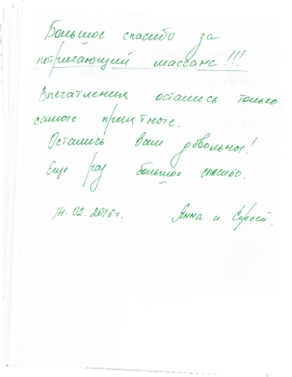 Большое спасибо за
потрясающий массаж!!!
Впечатления остались только
самые приятные.
Остались Вами довольны!
Еще раз большое спасибо.
14.02.2016г. Анна и Сергей.